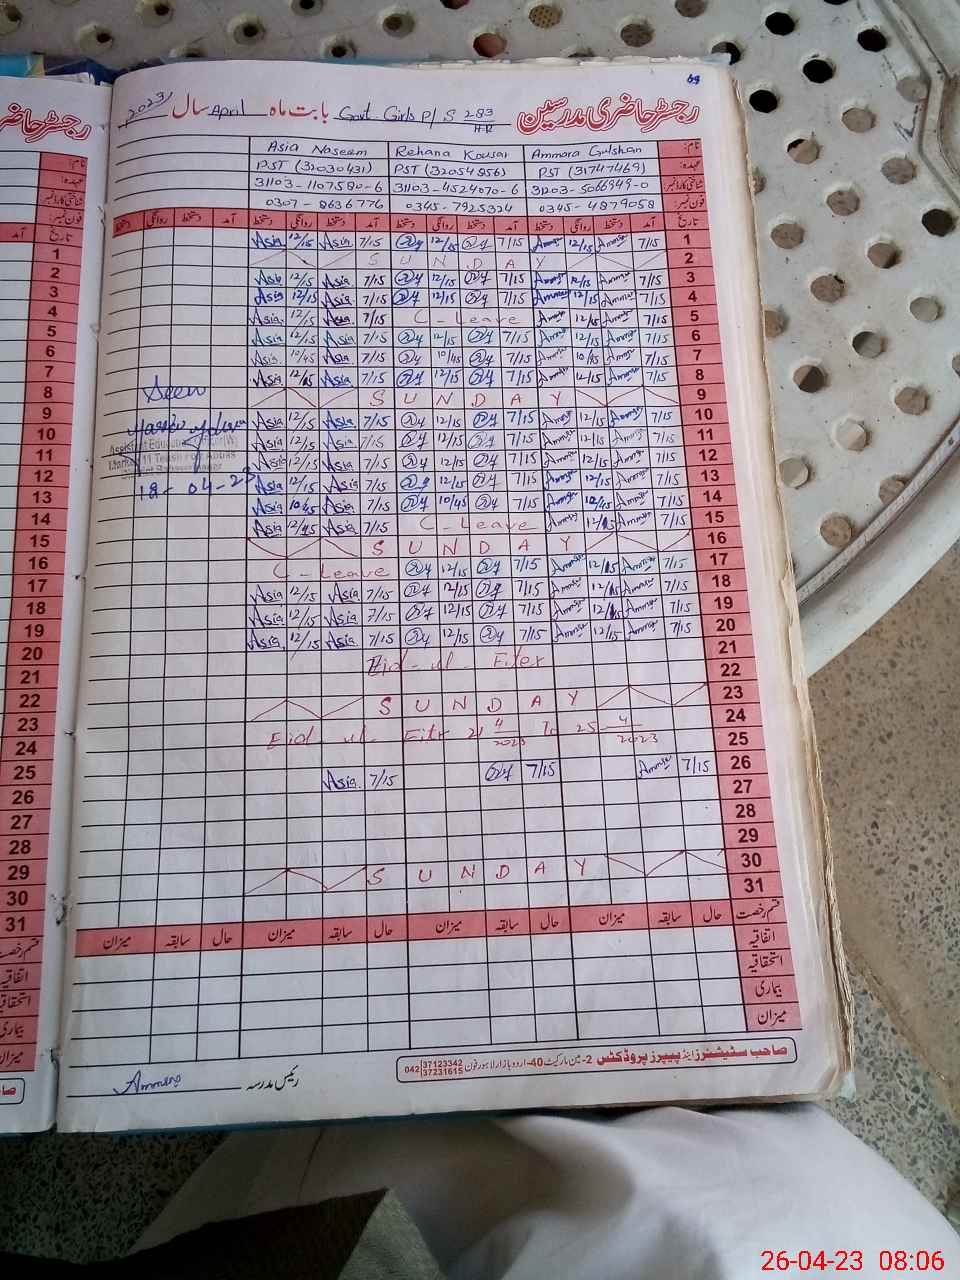 69
رجسٹر حاضری مدرسین بابت ماہ Govt Girls P/S 283/HR April سال 2023
نام: Ammara Gulshan Rehana Kousar Asia Naseem
عہدہ: PST (31747469) PST (32054856) PST (32030431)
شناختی کارڈ نمبر: 31203-5066949-0 31103-4524070-6 31103-1107580-6
فون نمبر: 0345-4879058 0345-7925324 0307-8636776
تاریخ آمد دستخط روانگی دستخط آمد دستخط روانگی دستخط آمد دستخط روانگی دستخط آمد دستخط روانگی دستخط
1 7/15 12/15 7/15 12/15 7/15 Asia 12/15 Asia
2 SUNDAY
3 7/15 12/15 7/15 12/15 7/15 Asia 12/15 Asia
4 7/15 12/15 7/15 12/15 7/15 Asia 12/15 Asia
5 7/15 12/15 C-Leave 7/15 Asia 12/15 Asia
6 7/15 12/15 7/15 12/15 7/15 Asia 12/15 Asia
7 7/15 10/45 7/15 10/45 7/15 Asia 10/45 Asia
8 7/15 12/15 7/15 12/15 7/15 Asia 12/15 Asia
9 SUNDAY
Seen
10 7/15 12/15 7/15 12/15 7/15 Asia 12/15 Asia
11 7/15 12/15 7/15 12/15 7/15 Asia 12/15 Asia
12 7/15 12/15 7/15 12/15 7/15 Asia 12/15 Asia
13 7/15 12/15 7/15 12/15 7/15 Asia 12/15 Asia
18-04-23
14 7/15 10/45 7/15 10/45 7/15 Asia 10/45 Asia
15 7/15 12/15 C-Leave 7/15 Asia 12/15 Asia
16 SUNDAY
17 7/15 12/15 7/15 12/15 C-Leave
18 7/15 12/15 7/15 12/15 7/15 Asia 12/15 Asia
19 7/15 12/15 7/15 12/15 7/15 Asia 12/15 Asia
20 7/15 12/15 7/15 12/15 7/15 Asia 12/15 Asia
21 Eid-ul-Fiter
22
23 SUNDAY
24 Eid-ul-Fitr 21 4/2023 To 25-4/2023
25
26 7/15 7/15 7/15 Asia
27
28
29
30 SUNDAY
31
قسم رخصت حال سابقہ میزان حال سابقہ میزان حال سابقہ میزان حال سابقہ میزان
اتفاقیہ
استحقاقیہ
بیماری
میزان
صاحب سٹیشنرز اینڈ پیپرز پروڈکٹس 2-مین مارکیٹ 40-اردو بازار لاہور فون 042 37123342 37231615
رئیس مدرسہ
26-04-23 08:06